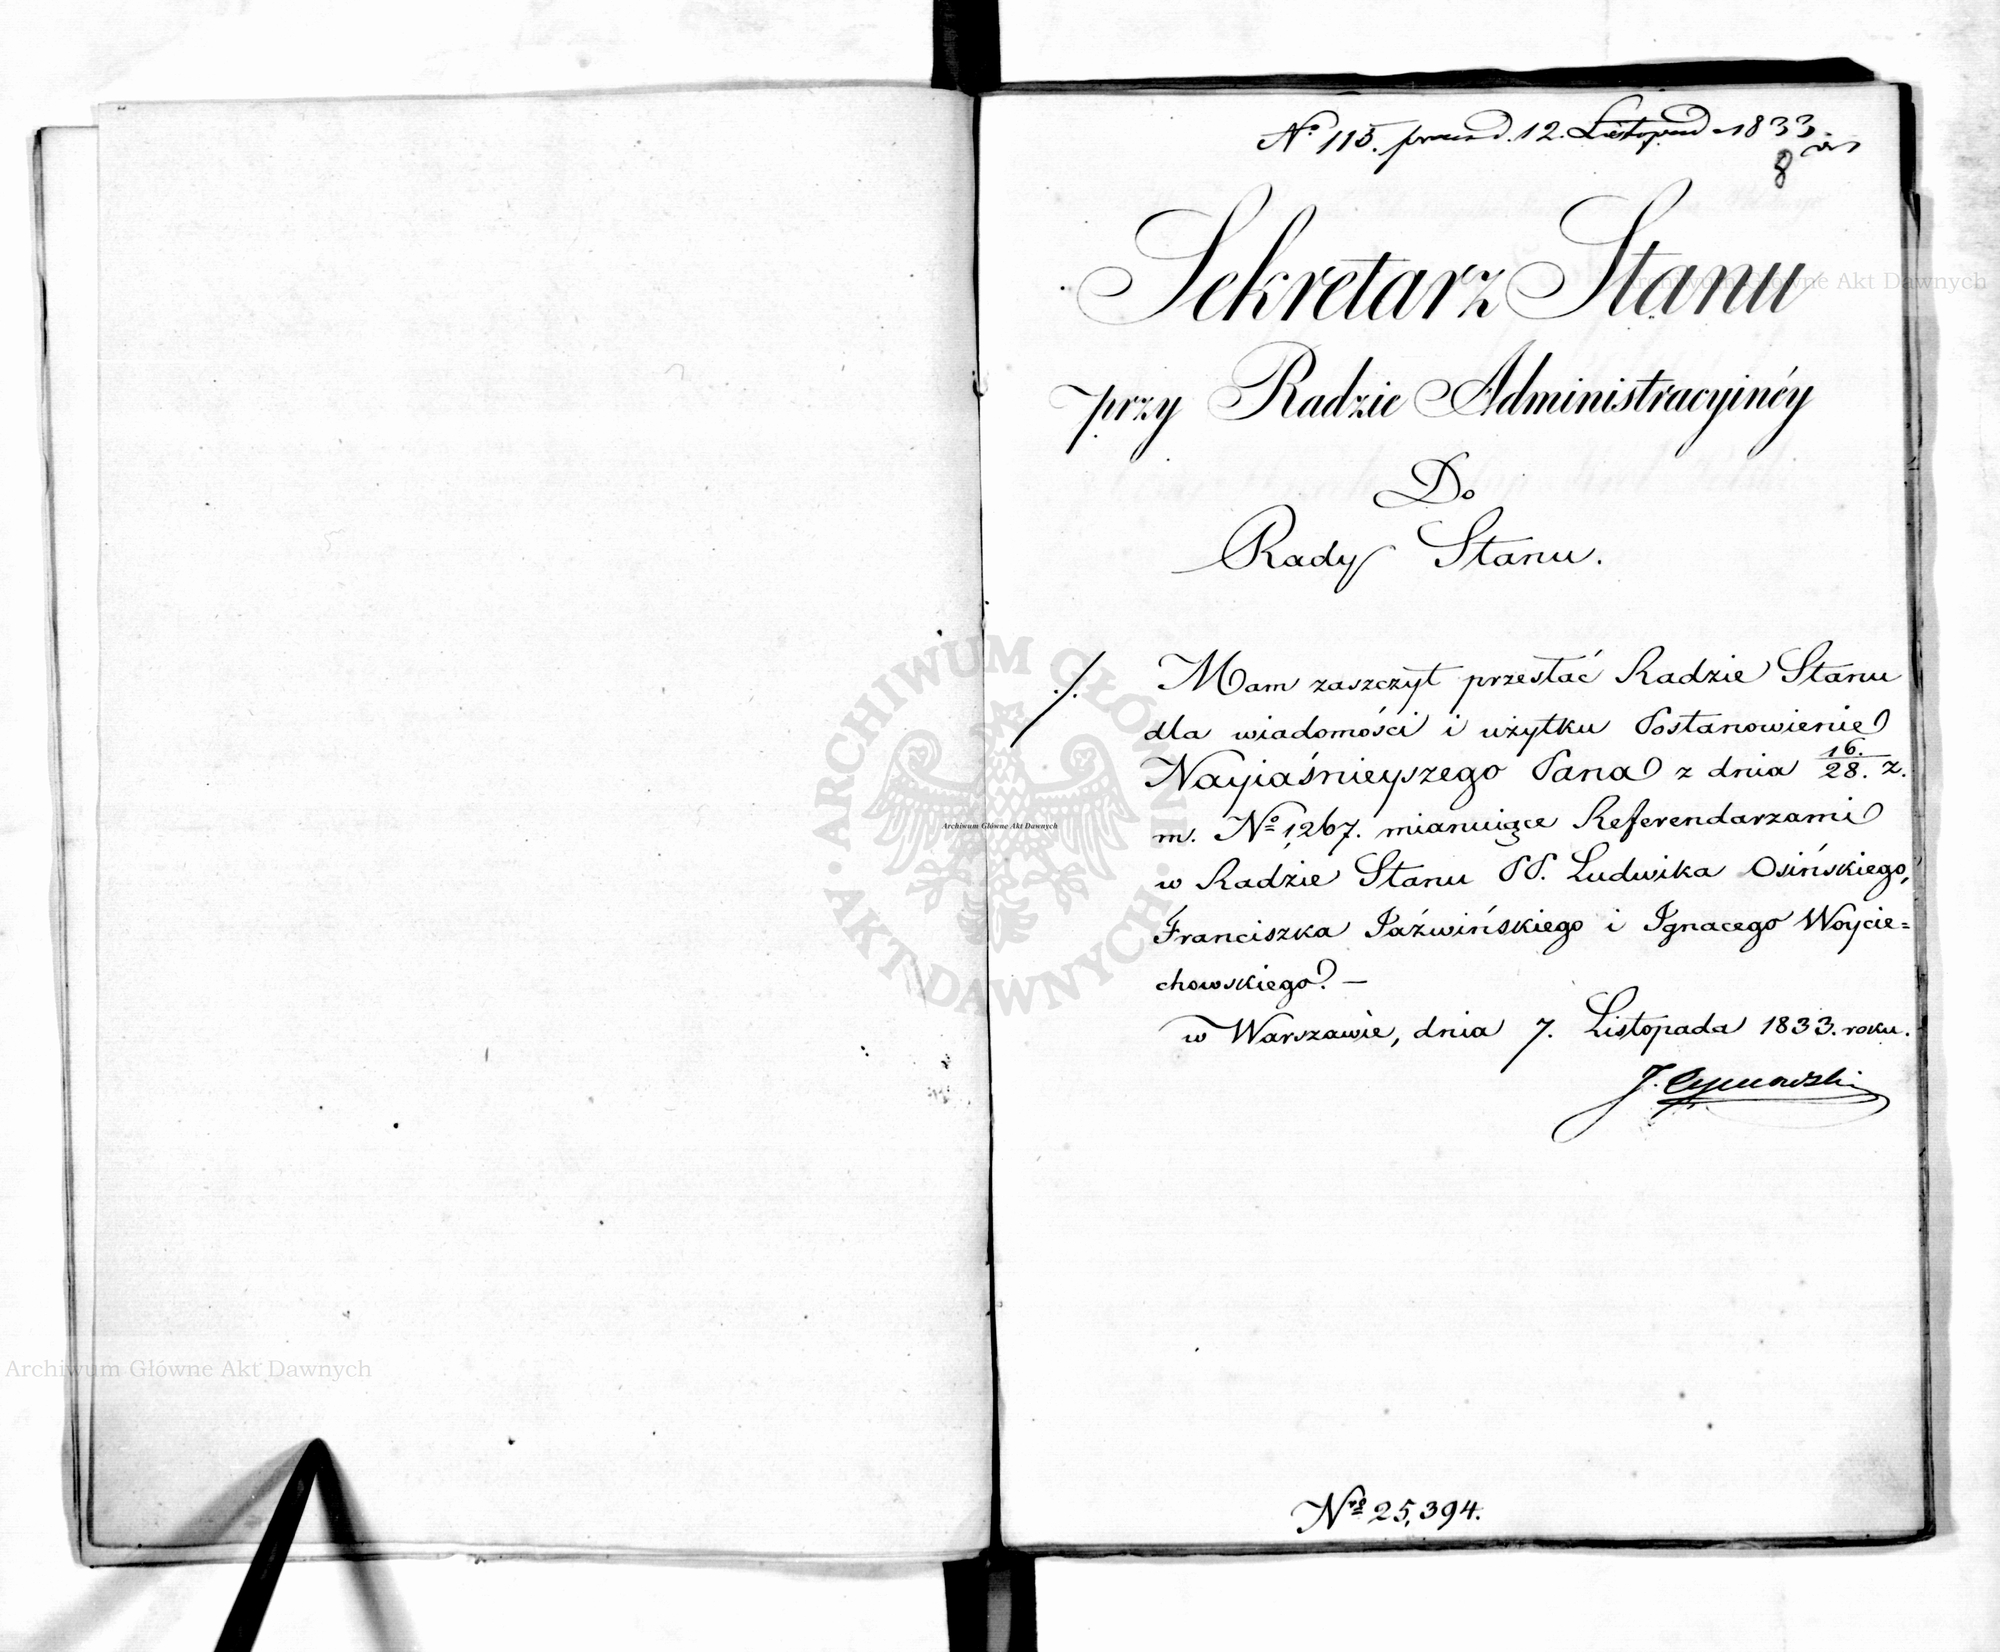 Nº 115. prezd. 12. Listopad 1833.
8
Sekretarz Stanu
przy Radzie Administracyinéy
Do
Rady Stanu.
./. Mam zaszczyt przesłać Radzie Stanu
dla wiadomości i użytku Postanowienie
Nayiaśnieyszego Pana z dnia 16./28. z.
m. Nº 1267. mianuiące Referendarzami
w Radzie Stanu PP. Ludwika Osińskiego,
Franciszka Jaźwińskiego i Ignacego Woycie=
chowskiego. —
w Warszawie, dnia 7. Listopada 1833. roku.
J. Tymowski
Nrº 25,394.
Archiwum Główne Akt Dawnych
ARCHIWUM GŁÓWNE · AKT DAWNYCH ·
Archiwum Główne Akt Dawnych
Archiwum Główne Akt Dawnych